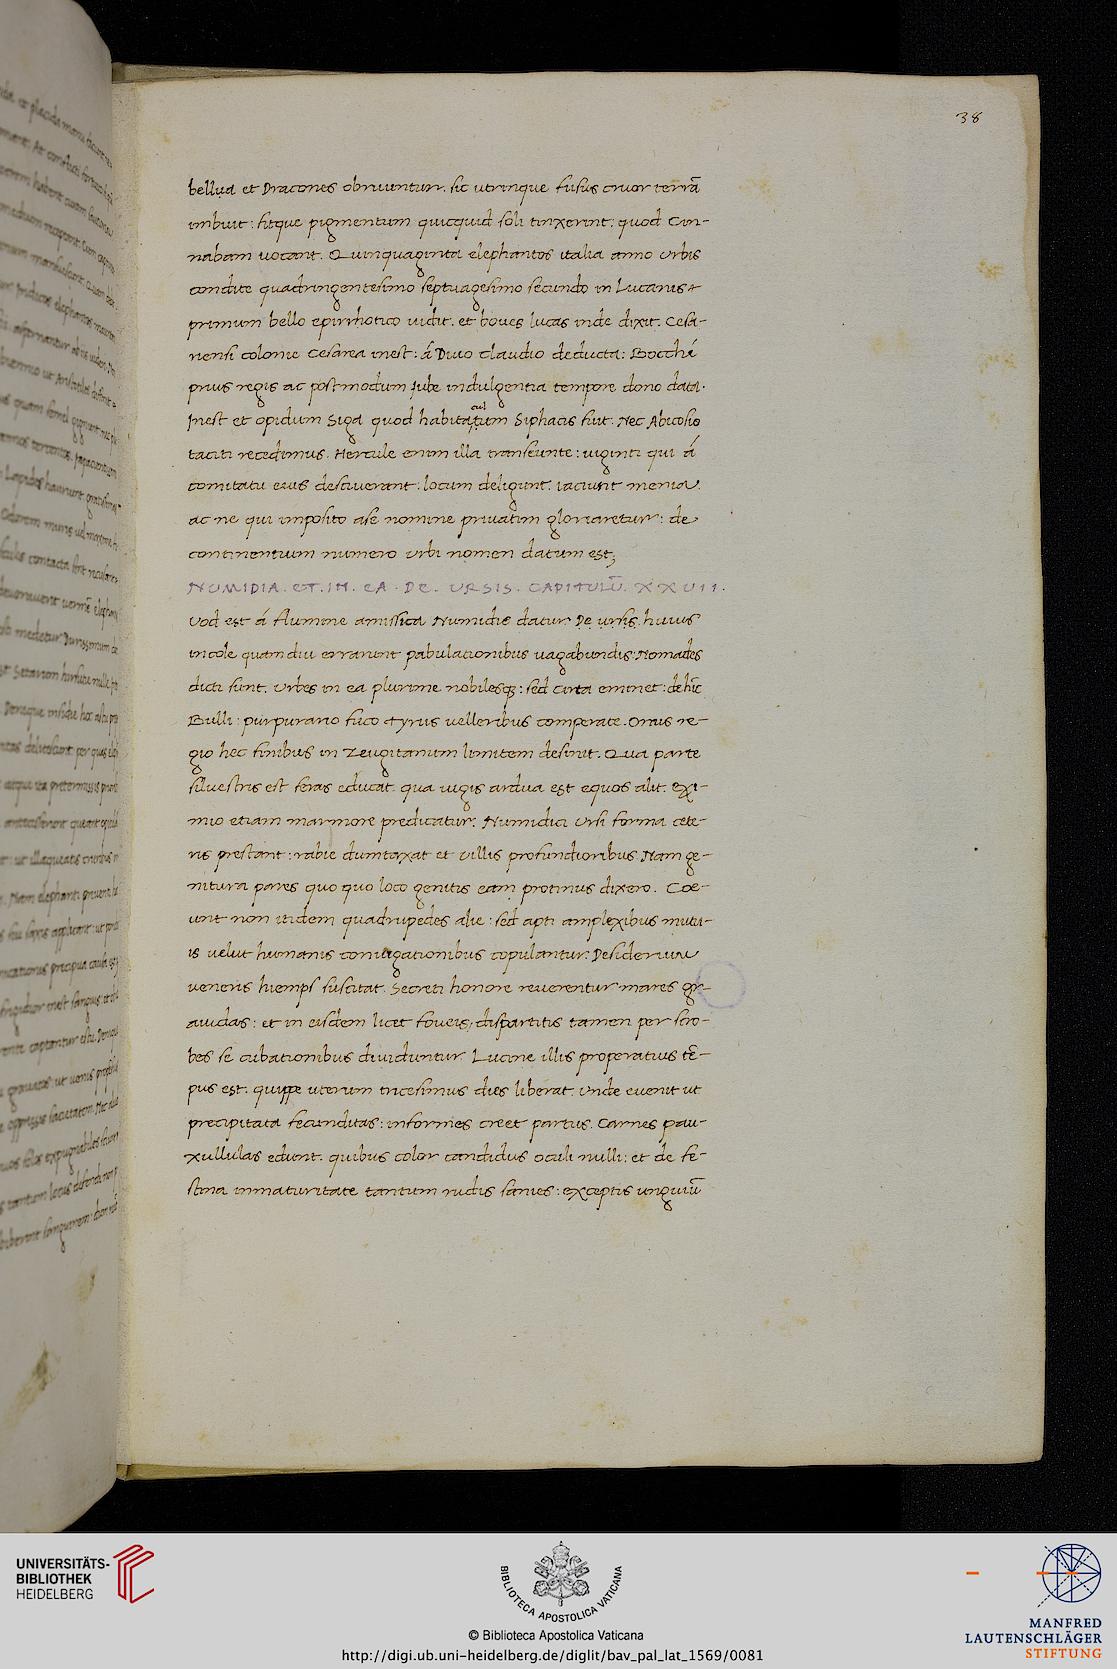 38
bellua et Dracones obruuntur. sic utrinque fusus cruor terrã
imbuit: fitque pigmentum quicquid soli tinxerint: quod Cin-
nabam uocant. Quinquaginta elephantos italia anno urbis
condite quadringentesimo septuagesimo secundo in Lucanis
primum bello epirrhotico uidit. et boues lucas inde dixit. Cesa-
riensi colonie Cesarea inest: á Diuo Claudio deducta: Bocchi
prius regis ac postmodum Iube indulgentia tempore dono data.
Inest et opidum Siga quod habitatum Siphacis fuit. Nec Abicosio
cul
taciti recedimus. Hercule enim illa transeunte: uiginti qui á
comitatu eius desciuerant: locum deligunt. iaciunt menia.
ac ne qui imposito ase nomine priuatim gloriaretur: de
continentium numero urbi nomen datum est;
NUMIDIA. ET. IN. EA. DE. URSIS. CAPITULŪ. XXVII.
Vod est á flumine amissica Numidis datur. De ursis. huius
incole quam diu errarunt pabulationibus uagabundis. Nomades
dicti sunt. Urbes in ea plurime nobilesq;: sed cirta eminet: dehĩc
Bulli: purpurario fuco tyriis uelleribus comperate. Omis re-
gio hec finibus in Zeugitanum limitem desinit. Qua parte
siluestris est feras educat. qua iugis ardua est equos alit. Exi-
mio etiam marmore predicatur. Numidici Ursi forma cete-
ris prestant: rabie dumtaxat et uillis profundioribus. Nam ge-
nitura pares quo quo loco genitis eam protinus dixero. Coe-
unt non itidem quadrupedes alie: sed apti amplexibus mutu-
is uelut humanis coniugationibus copulantur. Desiderium
ueneris hiemps suscitat. Secreti honore reuerentur mares gr-
auidas: et in eisdem licet foueis, dispartitis tamen per scro-
bes se cubationibus diuiduntur. Lucine illis properatius tẽ-
pus est. quippe uterum tricesimus dies liberat. Unde euenit ut
precipitata fecunditas: informes creet partus. Carnes pau-
xullulas edunt. quibus color candidus oculi nulli: et de fe-
stina inmaturitate tantum rudis sanies: exceptis unguiũ
UNIVERSITÄTS-
BIBLIOTHEK
HEIDELBERG
BIBLIOTECA APOSTOLICA VATICANA
© Biblioteca Apostolica Vaticana
http://digi.ub.uni-heidelberg.de/diglit/bav_pal_lat_1569/0081
MANFRED
LAUTENSCHLÄGER
STIFTUNG